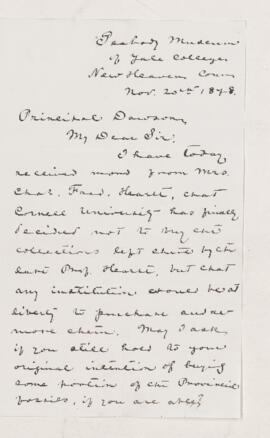 Peabody Museum
of Yale College
New Haven, Conn
Nov. 20th 1878.
Principal Dawson,
My Dear Sir:
I have today
received word from Mrs.
Chas. Fred. Hartt, that
Cornell University has finally
decided not to buy the
collections left there by the
late Prof. Hartt, but that
any institution would be at
liberty to purchase and re-
move them. May I ask
if you still hold to your
original intention of buying
some portion of the Provincial
fossils, if you are able?